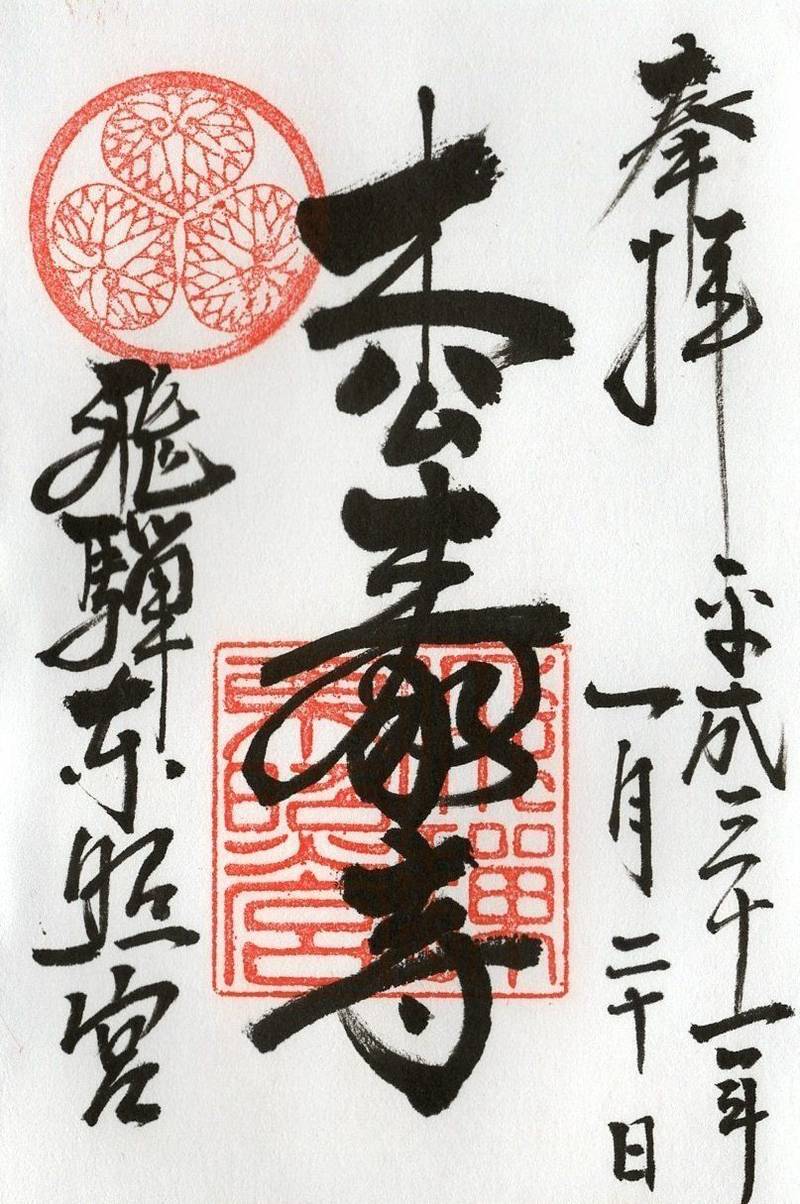 奉拝
平成三十一年
一月二十日
枩泰寺
飛騨東照宮
飛騨
東照宮